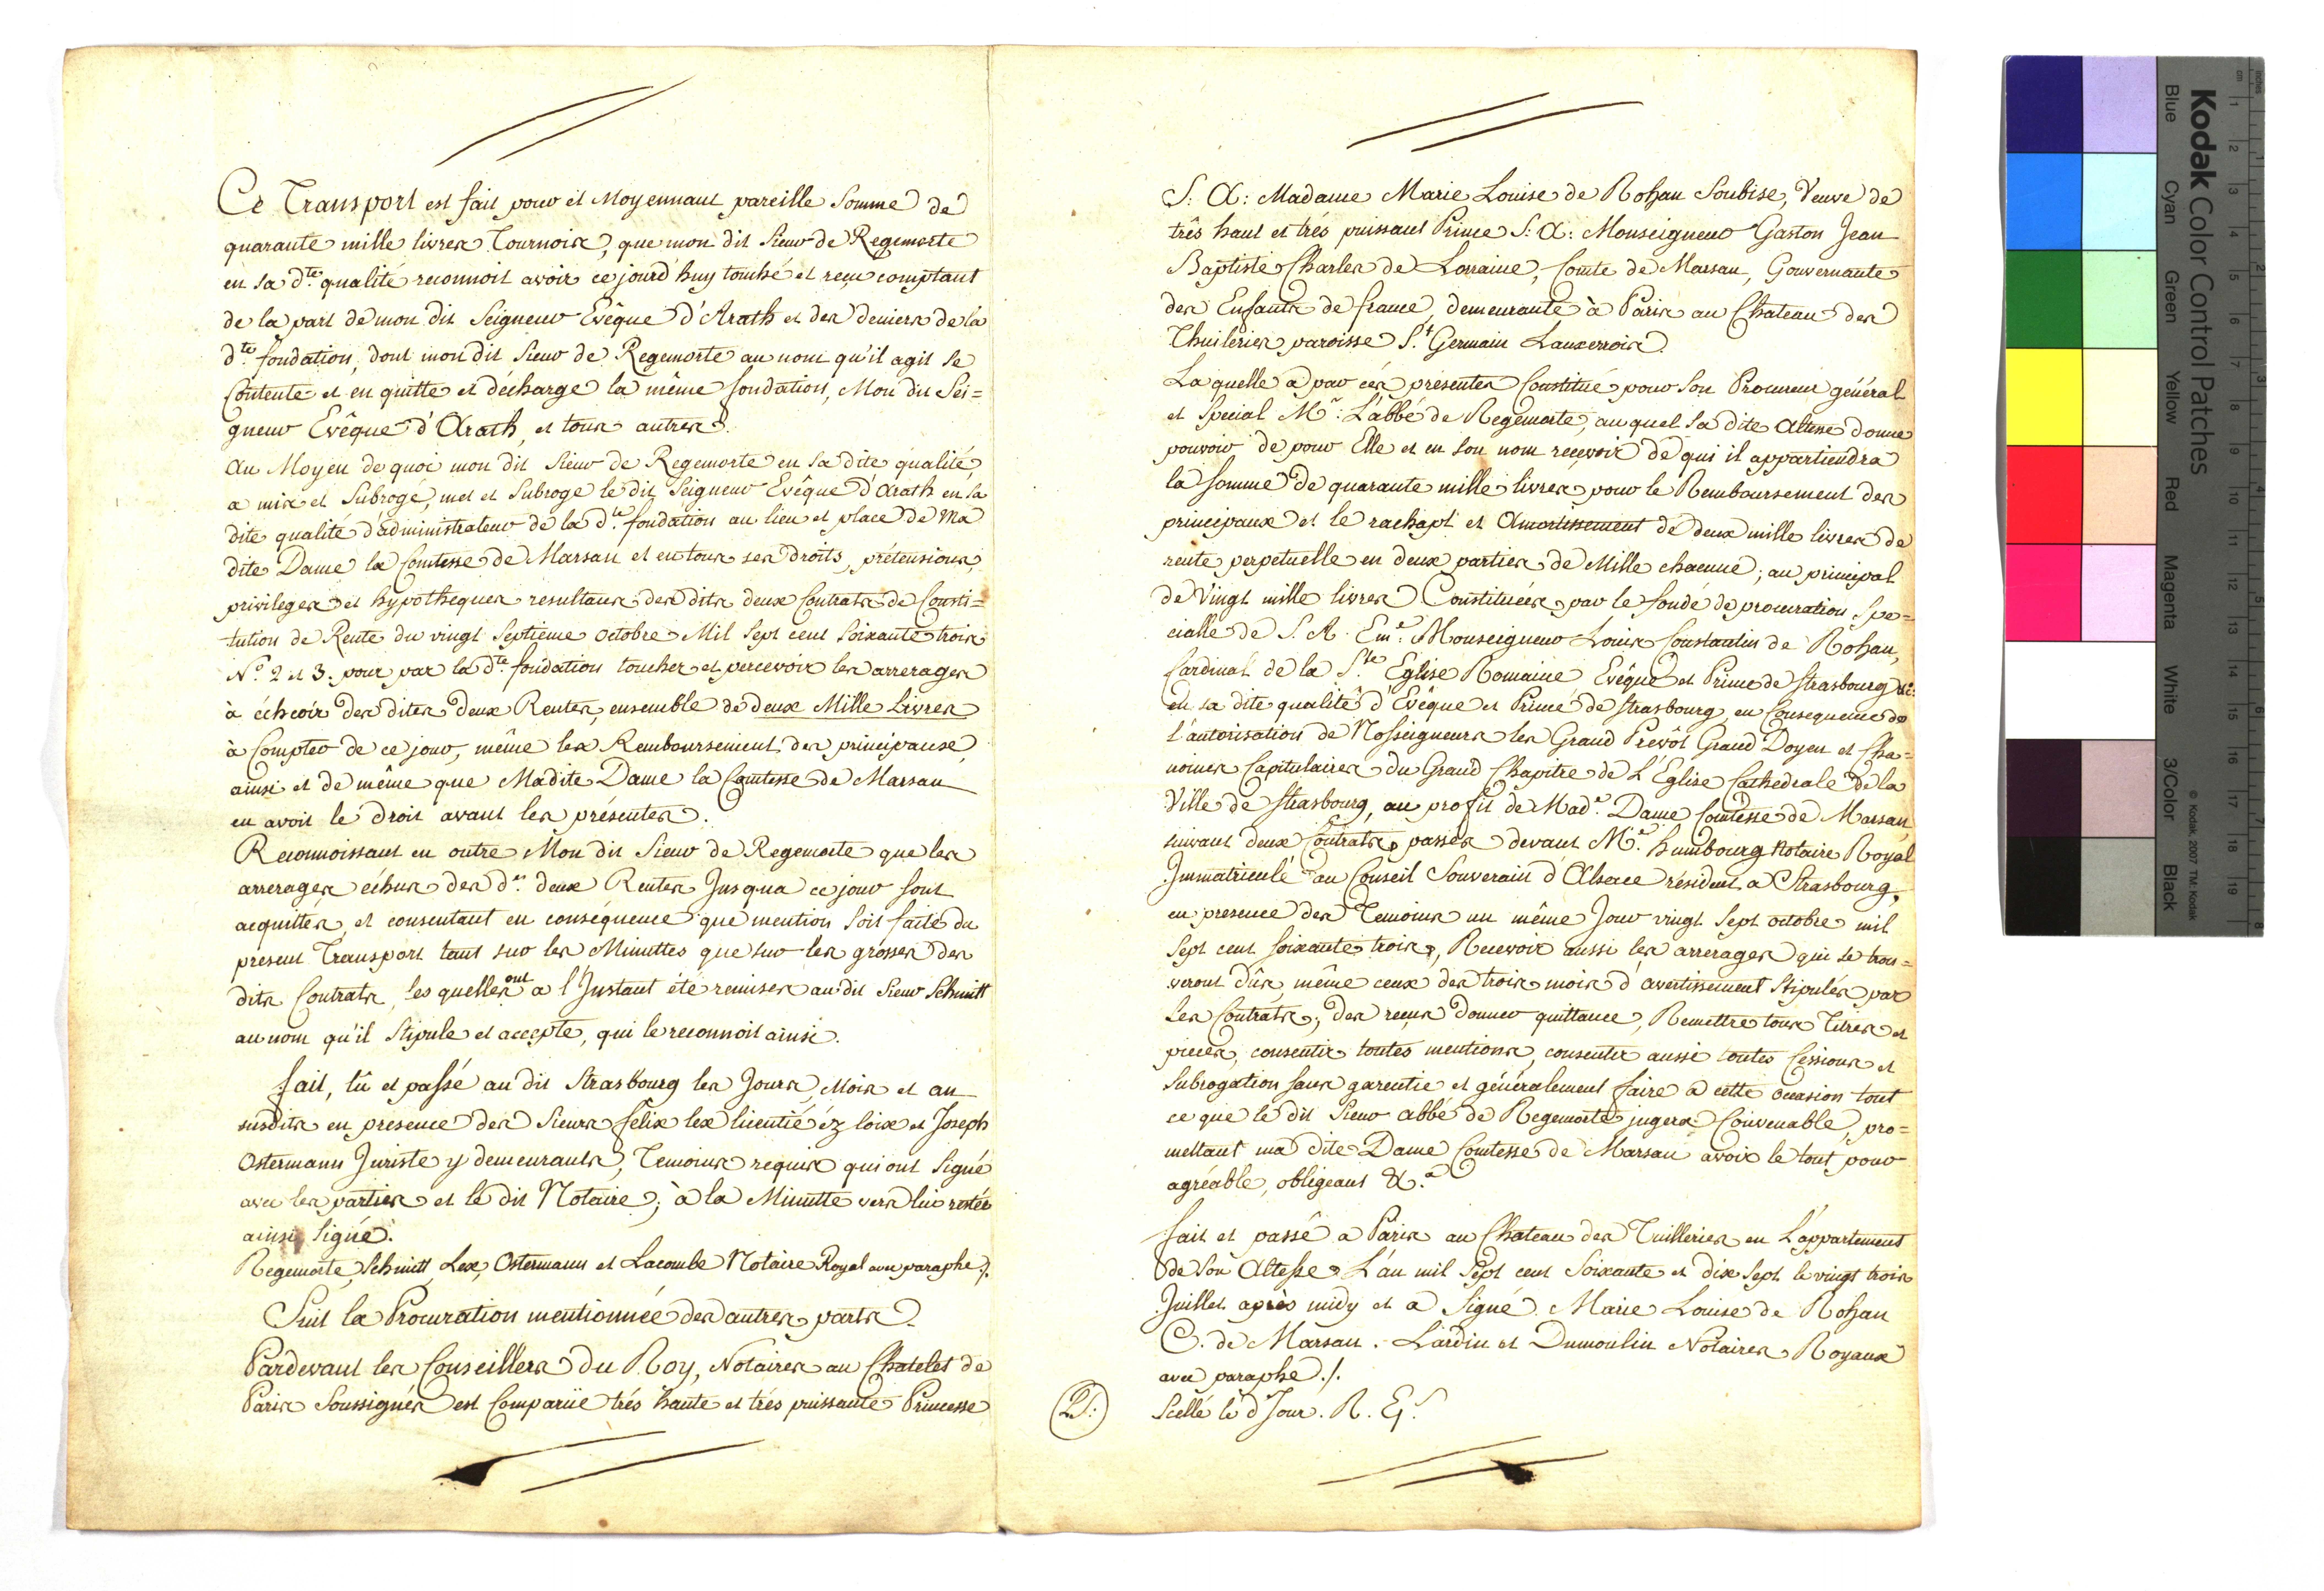 Ce Transport est fait pour et Moyennant pareille Somme de
quarante mille livres Tournois, que mon dit Sieur de Regemorte
en sa dte. qualité reconnoit avoir ce jourd'huy touché et reçu comptant
de la part de mon dit Seigneur Evêque d'Arath et des deniers de la
dte. fondation, dont mon dit Sieur de Regemorte au nom qu'il agit se
Contente et en quitte et décharge la même fondation, Mon dit Sei=
gneur Evêque d'Arath, et tous autres.
Au Moyen de quoi mon dit Sieur de Regemorte en sa dite qualité
a mis et Subrogé, met et Subroge le dit Seigneur Evêque d'Arath en sa
dite qualité d'administrateur de la dte. fondation au lieu et place de Ma
dite Dame la Comtesse de Marsan et en tous ses droits, prétensions,
privileges et hypotheques resultans des dits deux Contrats de Consti=
tution de Rente du vingt Septieme octobre Mil Sept cent Soixante trois
No. 2 et 3. pour par la dte. fondation toucher et percevoir les arrerages
à échcoir des dites deux Rentes, ensemble de deux Mille Livres
à Compter de ce jour, même les Remboursement des principaux,
ainsi et de même que Madite Dame la Comtesse de Marsan
en avoit le droit avant les présentes.
Reconnoissant en outre Mon dit Sieur de Regemorte que les
arrerages échus des d.es deux Rentes Jusqua ce jour sont
acquittés, et consentant en conséquence que mention soit faite du
present Transport tant sur les Minuttes que sur les grosses des
dits Contrats, les quelles ont a l'Instant été remises au dit Sieur Schmitt
au nom qu'il Stipule et accepte, qui le reconnoit ainsi.
fait, lû et passé au dit Strasbourg les Jours, Mois et an
susdits en presence des Sieurs felix lex licentié éz loix et Joseph
Ostermann Juriste y demeurants, Temoins requis qui ont Signé
avec les parties et le dit Notaire, à la Minutte vers lui restée
ainsi Signé.
Regemorte, Schmitt, Lex, Ostermann et Lacombe Notaire Royal avec paraphe ./.
Suit la Procuration mentionnée des autres parts.
Pardevant les Conseillers du Roy, Notaires au Chatelet de
Paris Soussignés est Comparüe trés haute et trés puissante Princesse
S: A: Madame Marie Louise de Rohan Soubise, Veuve de
trés haut et trés puissant Prince S: A: Monseigneur Gaston Jean
Baptiste Charles de Lorraine, Comte de Marsan, Gouvernante
des Enfants de france, demeurante à Paris au Chateau des
Thuileries paroisse St. Germain Lauxerrois.
La quelle a par cés présentes Constitué pour Son Procureur général
et Special Mr. L'abbé de Regemorte, au quel Sa dite Altesse donne
pouvoir de pour Elle et en son nom recevoir de qui il appartiendra
la Somme de quarante mille livres pour le Remboursement des
principaux et le rachapt et Amortissement de deux mille livres de
rente perpetuelle en deux parties de Mille chacune; au principal
de Vingt mille livres Constituées par le fondé de procuration Spe=
cialle de S. A. Eme. Monseigneur Louis Constantin de Rohan,
Cardinal de la Ste. Eglise Romaine Evêque et Prince de Strasbourg &c:
en sa dite qualité d'Evêque et Prince de Strasbourg, en Consequence de
l'autorisation de Nosseigneurs les Grand Prevôt Grand Doyen et Cha=
noines Capitulaires du Grand Chapitre de L'Eglise Cathedrale de la
Ville de Strasbourg, au profit de Made. Dame Comtesse de Marsan
suivant deux Contrats passés devant Me. humbourg Notaire Royal
Immatriculé au Conseil Souverain d'Alsace résident a Strasbourg,
en presence des Temoins un même Jour vingt Sept octobre mil
Sept cent soixante trois, Recevoir aussi les arrérages qui se trou=
veront dûs, même ceux des trois mois d'avertissement Stipulés par
les Contrats; des reçus donner quittance, Remettre tous Titres et
pieces, consentir toutes mentions, consentir aussi toutes Cessions et
Subrogation sans garentie et généralement faire à cette occasion tout
ce que le dit Sieur abbé de Regemorte jugera Convenable, pro=
mettant ma dite Dame Comtesse de Marsan avoir le tout pour
agréable, obligeant &.a
fait et passé a Paris au Chateau des Tuilleries en L'appartement
de Son Altesse L'an mil Sept cent Soixante et dix Sept le vingt trois
Juillet après midy et a Signé. Marie Louise de Rohan
C. de Marsan. Lardin et Dumoulin Notaires Royaux
avec paraphe ./.
Scellé le d. Jour.